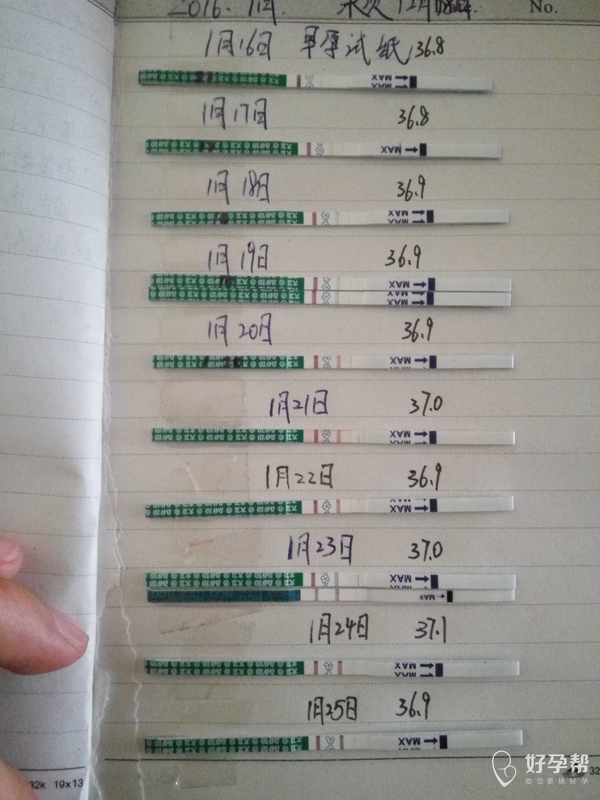 2016.1月. 末次12月 No.
1月16日 早孕试纸 36.8
MAX
MAX
1月17日 36.8
MAX
1月18日 36.9
MAX
MAX
1月19日 36.9
MAX
MAX
MAX
1月20日 36.9
MAX
1月21日 37.0
MAX
1月22日 36.9
MAX
1月23日 37.0
MAX
MAX
1月24日 37.1
MAX
MAX
1月25日 36.9
MAX
32K 19x13
32
好孕帮
助您更快好孕